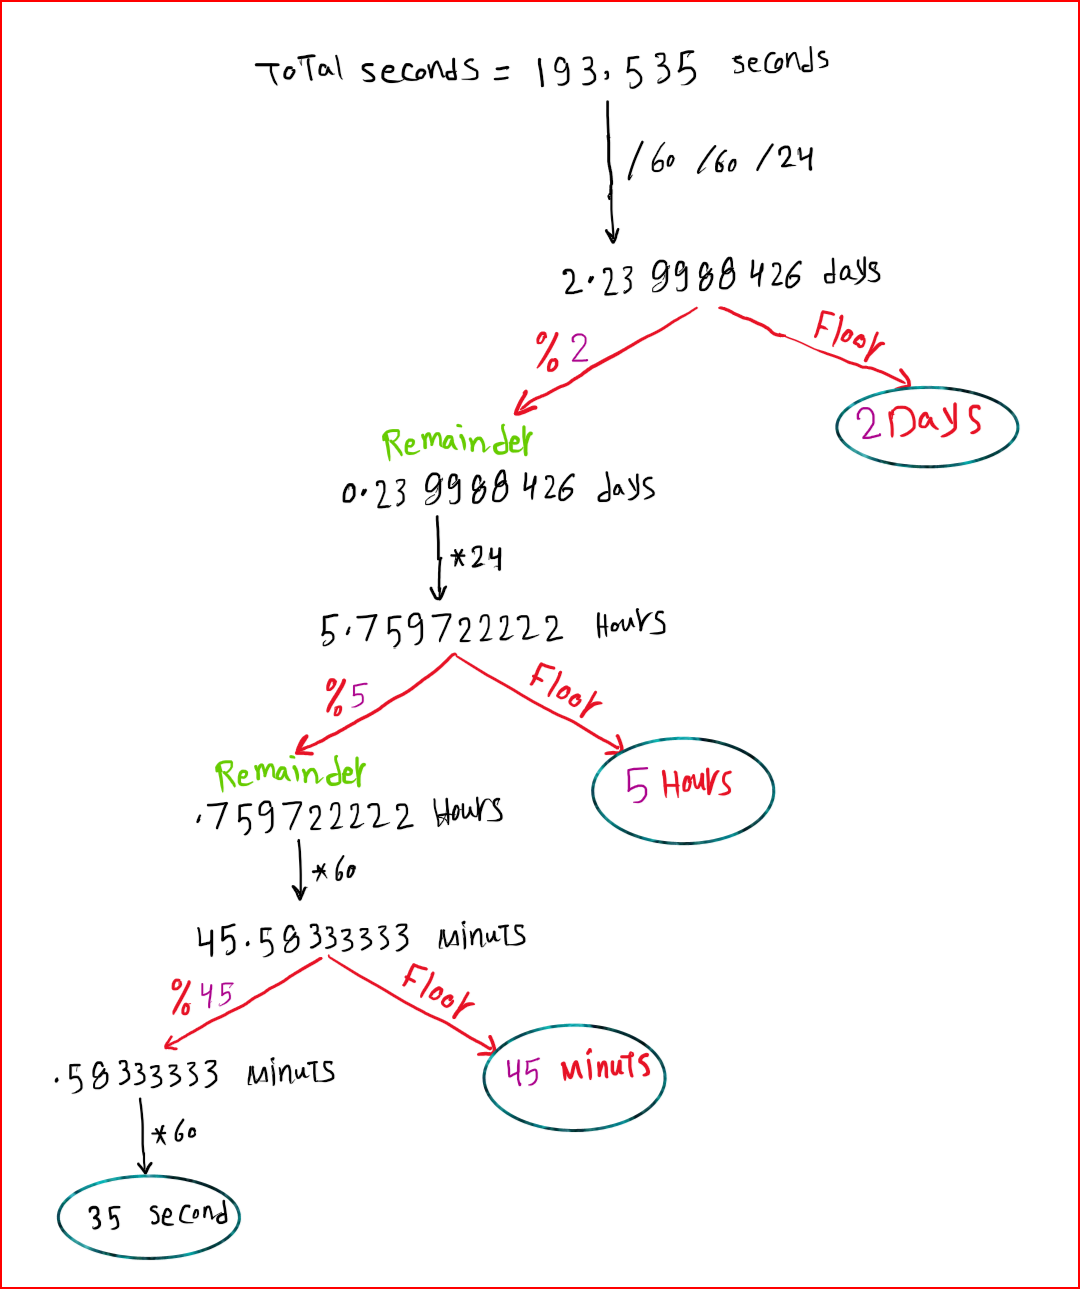 ToTal seconds = 193,535 seconds
/60 /60 /24
2.239988426 days
%2
Floor
2 Days
Remainder
0.239988426 days
*24
5.759722222 Hours
%5
Floor
5 Hours
Remainder
.759722222 Hours
*60
45.58333333 MinuTs
%45
Floor
45 MinuTs
.58333333 MinuTs
*60
35 second